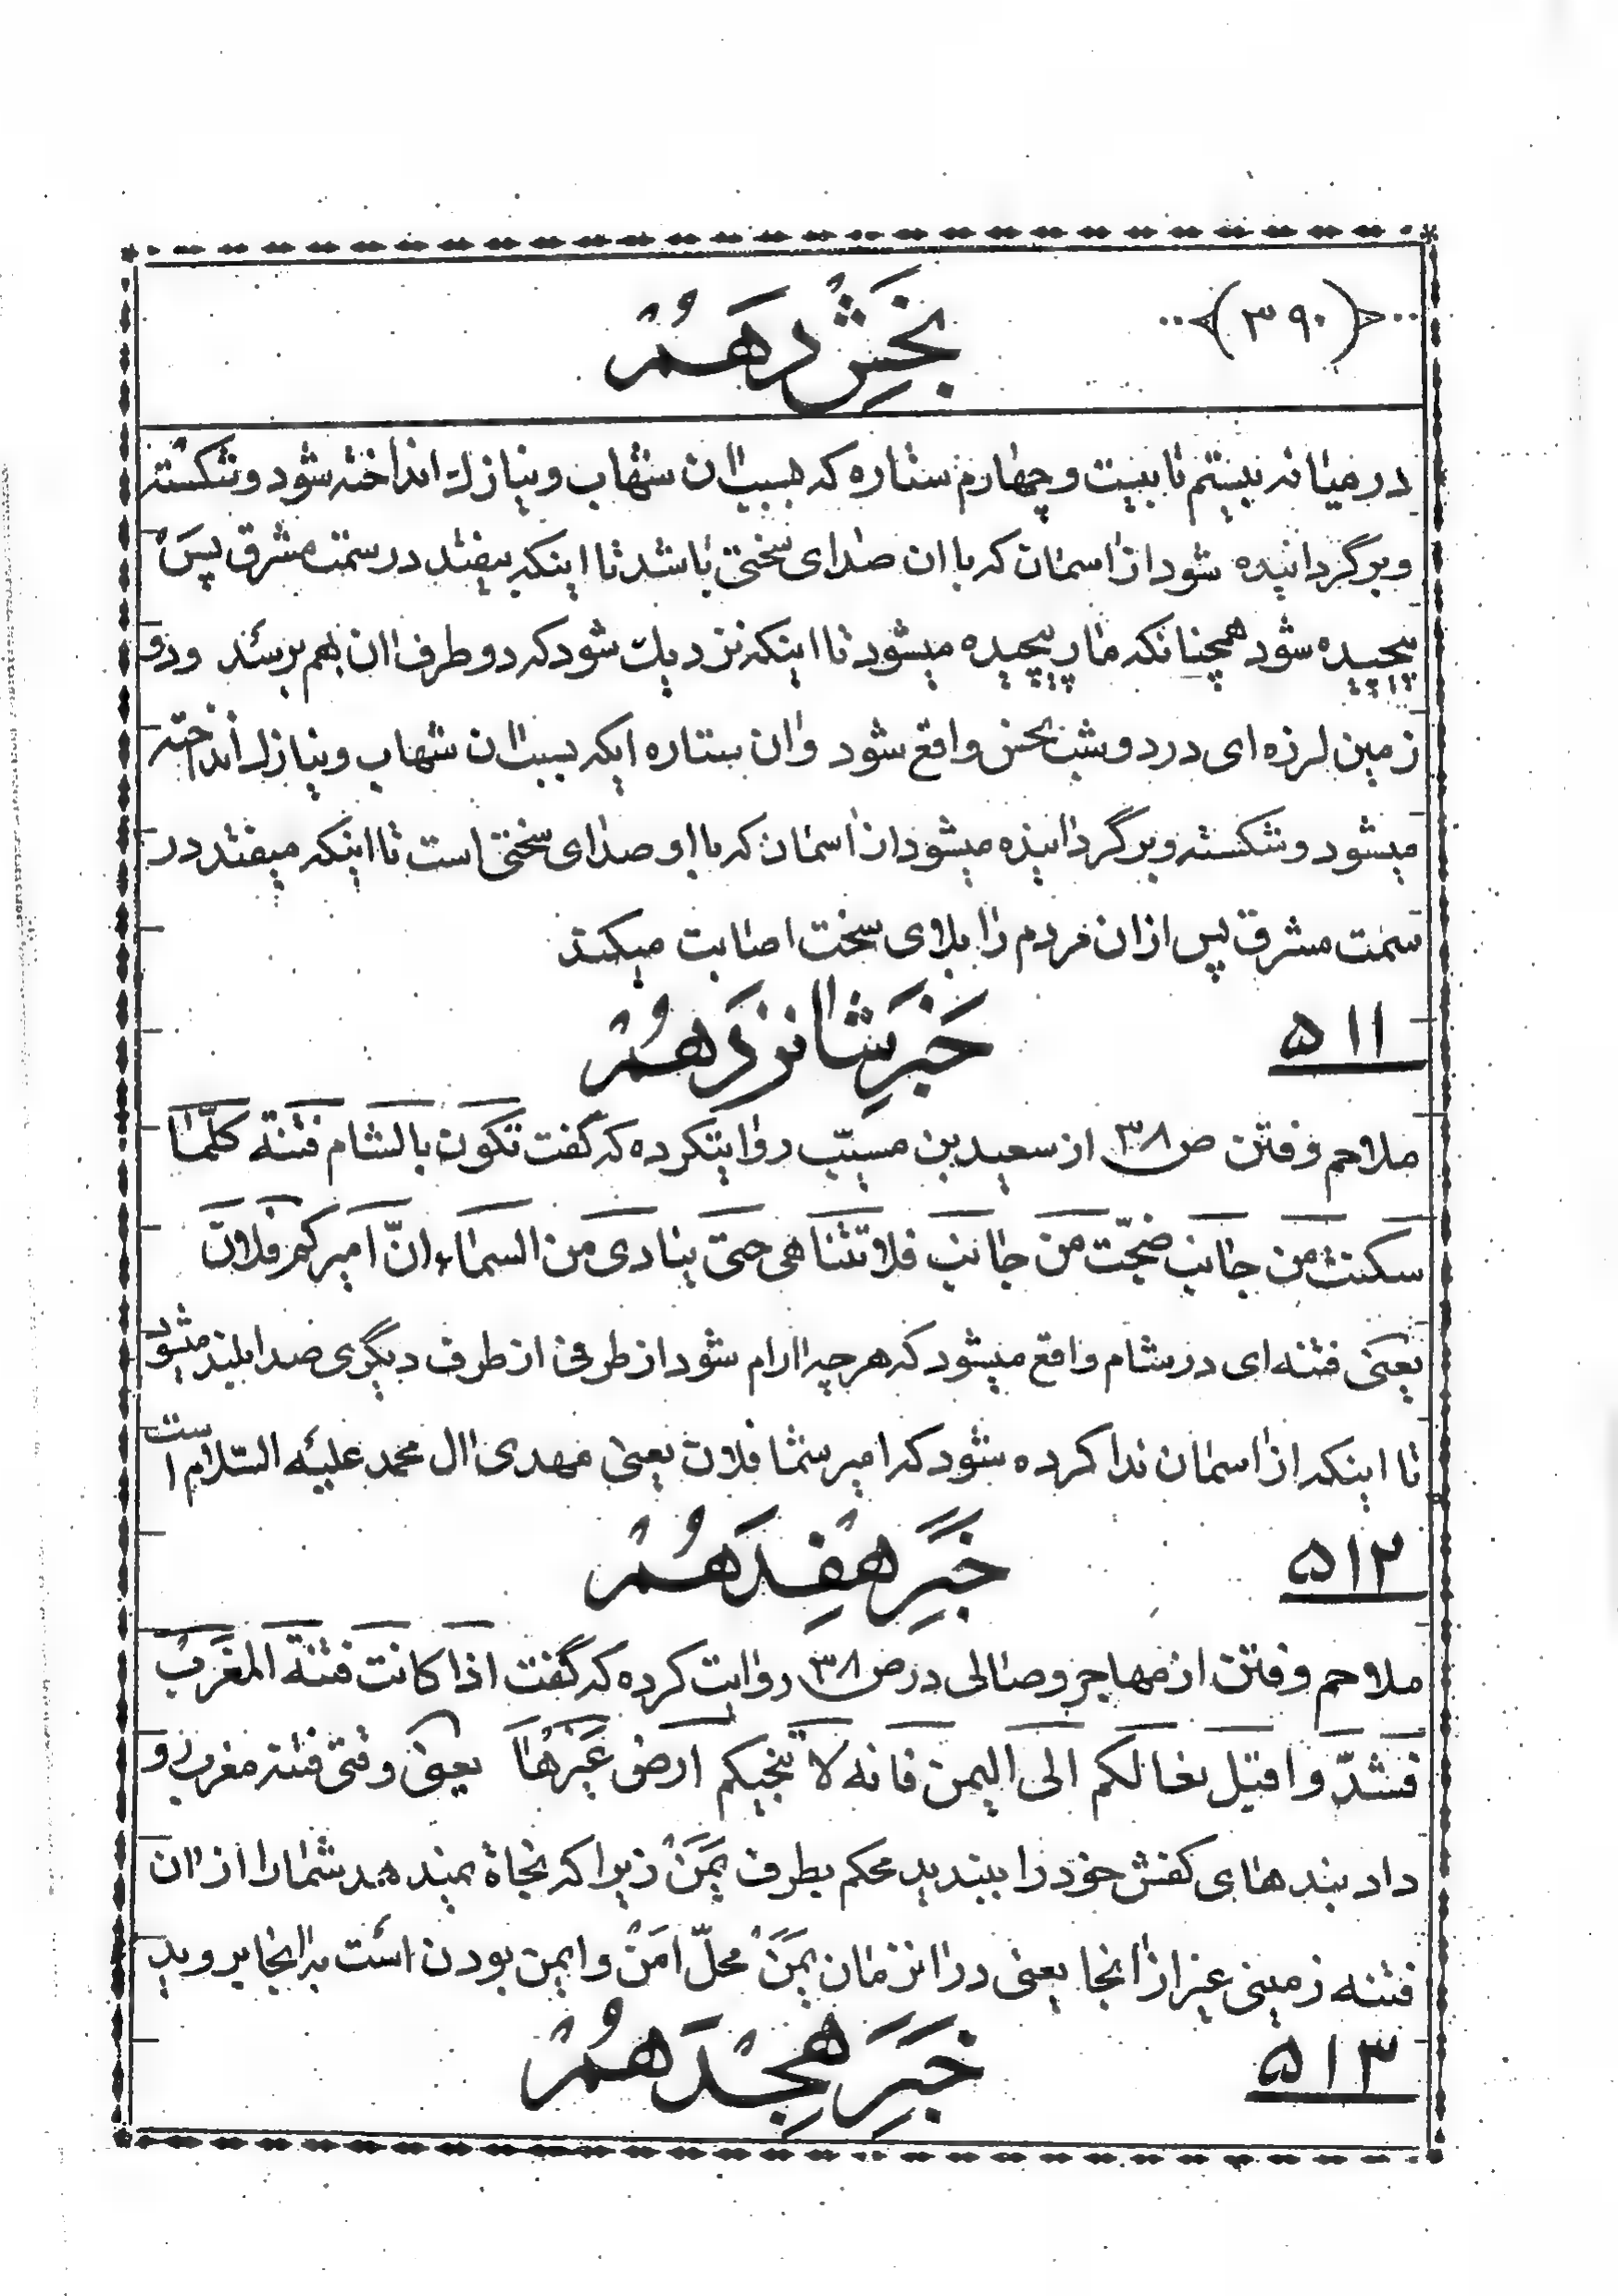 (۳۹۰)
بخش دهم
در میانه بیستم تا بیست و چهارم ستاره که بسبب آن شهاب و نیازک انداخته شود و شکسته
و برگردانیده شود از آسمان که با آن صدای سختی باشد تا اینکه بیفتد در سمت مشرق پس
پیچیده شود همچنانکه مار پیچیده میشود تا اینکه نزدیک شود که دو طرف آن بهم برسد و دو
زمین لرزه ای در دو شب نحس واقع شود و آن ستاره ایکه بسبب آن شهاب و نیازک انداخته
میشود و شکسته و برگردانیده میشود از آسمان که با او صدای سختی است تا اینکه میفتد در
سمت مشرق پس از آن مردم را بلای سخت اصابت میکند
۵۱۱
خبر شانزدهم
ملاحم و فتن ص۳۸ از سعید بن مسیّب روایتکرده که گفت تکون بالشام فتنة کلّما
سکنت من جانب ضجّت من جانب فلا تتناهی حتی ینادی من السماء انّ امیرکم فلان
یعنی فتنه ای در شام واقع میشود که هر چه آرام شود از طرفی از طرف دیگری صدا بلند میشود
تا اینکه از آسمان ندا کرده شود که امیر شما فلان یعنی مهدی آل محمد علیه السّلام است
۵۱۲
خبر هفدهم
ملاحم و فتن از مهاجر وصالی در ص۳۸ روایت کرده که گفت اذا کانت فتنة المغرب
فشدّوا قبل نعالکم الی الیمن فانه لا ینجیکم ارض غیرها یعنی وقتی فتنه مغرب رو
داد بندهای کفش خود را ببندید محکم بطرف یمن زیرا که نجاة نمیدهد شما را از آن
فتنه زمینی غیر از آنجا یعنی در آنزمان یمن محلّ امن و ایمن بودن است به آنجا بروید
۵۱۳
خبر هجدهم